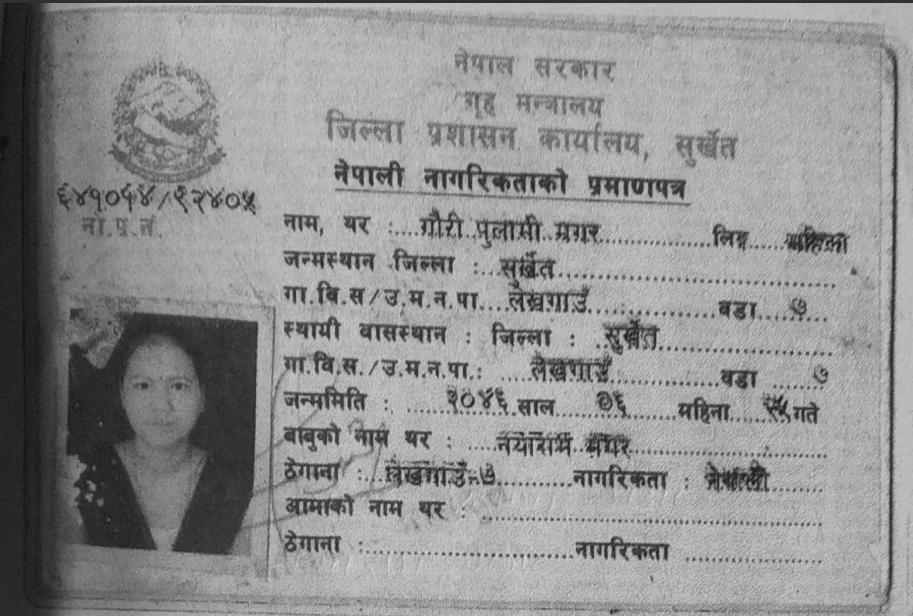 नेपाल सरकार
गृह मन्त्रालय
जिल्ला प्रशासन कार्यालय, सुर्खेत
नेपाली नागरिकताको प्रमाणपत्र
ना.प्र.नं.
नाम, थर :....गौरी पुलामी मगर............... लिङ्ग ....महिला
जन्मस्थान जिल्ला :..सुर्खेत..............................
गा.वि.स/उ.म.न.पा...लेखगाउँ...............वडा ..७...
स्थायी वासस्थान : जिल्ला : ..सुर्खेत.....................
गा.वि.स./उ.म.न.पा.: .....लेखगाउँ............वडा .....७
जन्ममिति : .....२०४६.साल ...०६ महिना ...गते
बाबुको नाम थर : ....मगर..................
ठेगाना :...लेखगाउँ-७..........नागरिकता : नेपाली.....
आमाको नाम थर : ....................................
ठेगाना :..........................नागरिकता .................